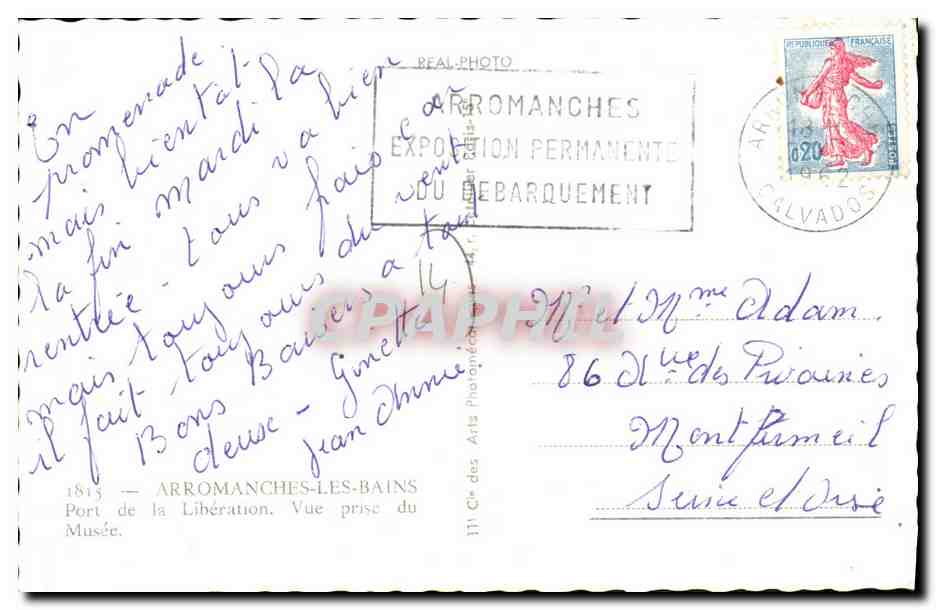 REAL-PHOTO
ARROMANCHES
EXPOSITION PERMANENTE
DU DEBARQUEMENT
REPUBLIQUE FRANÇAISE
0,20
1962
CALVADOS
En
promenade
mais bientôt
la fin. mardi la
rentrée. tous va bien
mais toujours frais car
il fait toujours du vent.
Bons Baisers a tous
deux - Ginette
Jean Annie
14
CPAPHIL
Mr et Mme Adam.
86 des
Montfermeil
Seine et Oise
1815 — ARROMANCHES-LES-BAINS
Port de la Libération. Vue prise du
Musée.
Cie des Arts Photomécaniques